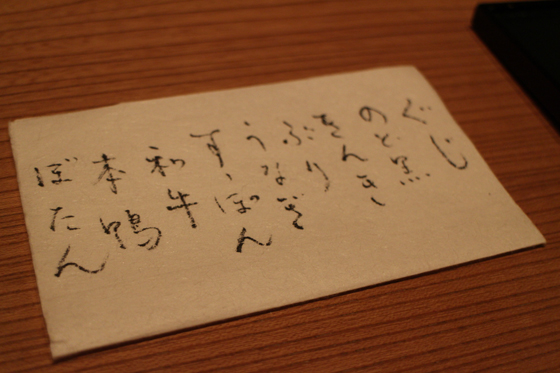 ぐじ
のど黒
きんき
ぶり
うなぎ
すっぽん
和牛
本鴨
ぼたん